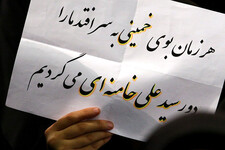 هر زمان بوی خمینی به سر افتد ما را
دور سید علی خامنه ای می گردیم